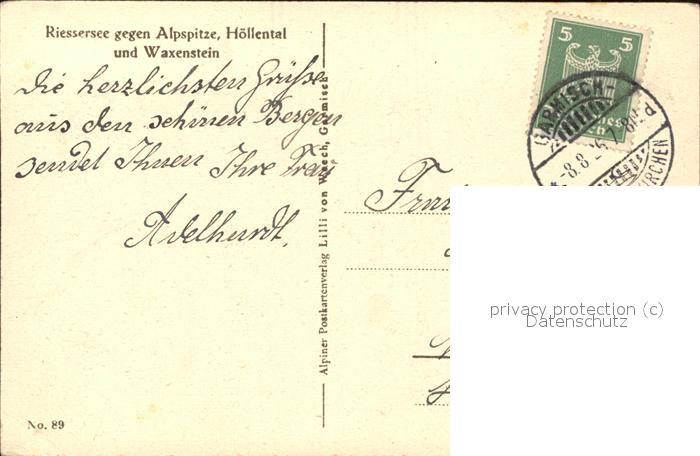 Riessersee gegen Alpspitze, Höllental
und Waxenstein
Die herzlichsten Grüße
aus den schönen Bergen
sendet Ihnen Ihre Frau
Adelhardt.
No. 89
Alpiner Postkartenverlag Lilli von Waech, Garmisch
5 5
GARMISCH-
-8.8.26.7-8N.
KIRCHEN
privacy protection (c)
Datenschutz